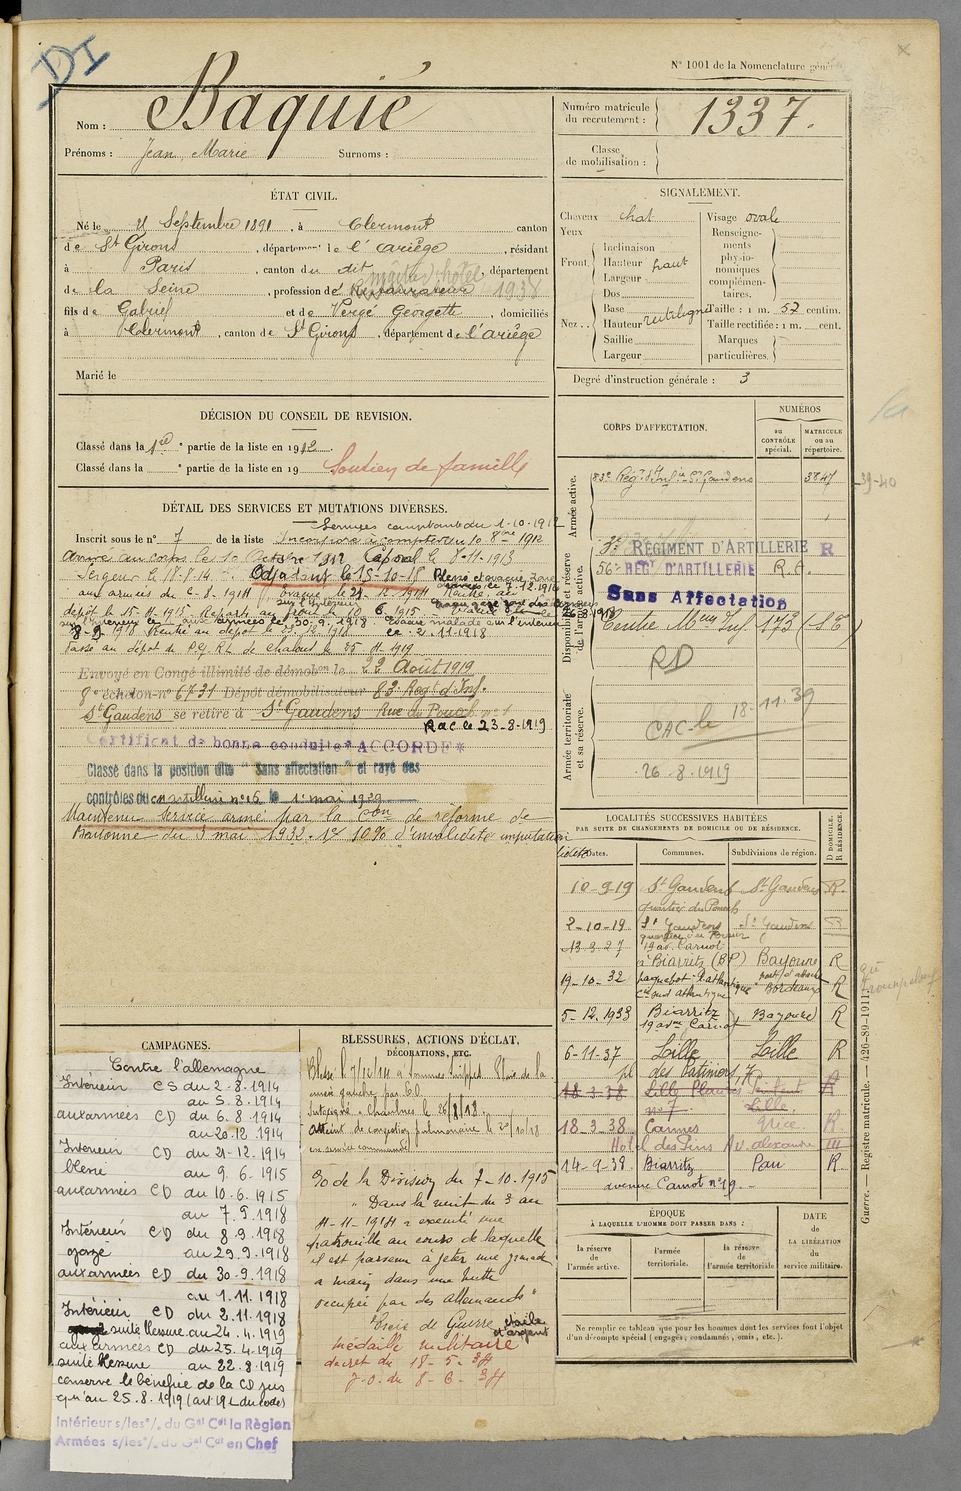 DI
N° 1001 de la Nomenclature géné
Nom : Baquié
Prénoms : Jean Marie Surnoms :
Numéro matricule du recrutement : 1337.
Classe de mobilisation :
ÉTAT CIVIL.
Né le 21 Septembre 1891, à Clermont canton
de St Girons, département de l'Ariège, résidant
à Paris, canton du dit département
maître d'hôtel
de la Seine, profession de Restaurateur 1938
fils de Gabriel et de Vergé Georgette, domiciliés
à Clermont, canton de St Girons, département de l'Ariège
Marié le
SIGNALEMENT.
Cheveux chat Visage ovale
Yeux Renseignements physionomiques complémentaires.
Front. Inclinaison
Hauteur haut
Largeur
Nez .. Dos
Base rectiligne Taille : 1 m. 57 centim.
Hauteur Taille rectifiée : 1 m. cent.
Saillie Marques particulières.
Largeur
Degré d'instruction générale : 3
DÉCISION DU CONSEIL DE REVISION.
Classé dans la 1re partie de la liste en 1912.
Classé dans la partie de la liste en 19 Soutien de famille
DÉTAIL DES SERVICES ET MUTATIONS DIVERSES.
Services comptant du 1-10-1912
Inscrit sous le n° 7 de la liste Incorporé à compter du 10 8bre 1912
Arrivé au corps le 10 Octobre 1912 Caporal le 8-11-1913
Sergent le 17-7-14 Adjudant le 15-10-15
aux armées du 6-8-1914 Évacué le 21-12-1914 Rentré au
dépôt le 15-4-1915
8-9-1918 Rentré au dépôt le 23.12.1918 le 2.11.1918
Passé au dépôt de P.G. R.L. de Chalons le 25
Envoyé en Congé illimité de démobon le 22 Août 1919
8e échelon n° 6731 Dépôt démobilisateur 83e Regt d'Inf.
St Gaudens se retire à St Gaudens Rue du Pouech n° 1
R.a.c. le 23-8-1919
Certificat de bonne conduite "ACCORDÉ"
Classé dans la position dite "Sans affectation" et rayé des
contrôles du c.m. artillerie n° 16 le 1er mai 1939
Maintenu service armé par la Con de réforme de
Bayonne du 3 mai 1932. 1° 10% d'invalidité amputation
CORPS D'AFFECTATION.
NUMÉROS
au CONTRÔLE spécial.
MATRICULE ou au répertoire.
Armée active.
83e Régt d'Infie St Gaudens 3847
39-40
Disponibilité et réserve de l'armée active.
3e RÉGIMENT D'ARTILLERIE R
56e REGt D'ARTILLERIE R.C.
Sans Affectation
Centre Mque Inf 173 (S.E)
RD
Armée territoriale et sa réserve.
CAC-le 18-11-39
26-8-1919
LOCALITÉS SUCCESSIVES HABITÉES
PAR SUITE DE CHANGEMENTS DE DOMICILE OU DE RÉSIDENCE.
Dates. Communes. Subdivisions de région. D DOMICILE. R RÉSIDENCE.
10-9-19 St Gaudens St Gaudens R.
quartier du Pouech
2-10-19 St Gaudens St Gaudens
13-3-27 19 av. Carnot
à Biarritz (BP) Bayonne R
19-10-32 paquebot l'atlantique port d'attache R
Cie sud atlantique Bordeaux
5-12-1933 Biarritz Bayonne R
19 avue Carnot
6-11-37 Lille Lille R
pl des Patiniers, 7
18-3-38 Lille R
n° 7 Lille.
18-3-38 Cannes Nice R.
Hotel des Pins Av. Alexandre III
14-9-38 Biarritz Pau R.
avenue Carnot n° 19.
CAMPAGNES.
Contre l'allemagne
Intérieur CS du 2-8-1914
au 5.8.1914
aux armées CD du 6.8.1914
au 20.12.1914
Intérieur CD du 21-12.1914
blessé au 9.6.1915
aux armées CD du 10.6.1915
au 7.9.1918
Intérieur CD du 8.9.1918
gazé au 29.9.1918
aux armées CD du 30-9.1918
au 1.11.1918
Intérieur CD du 2.11.1918
suite blessure au 24.4.1919
aux armées CD du 25.4.1919
suite blessure au 22.8.1919
conserve le bénéfice de la CD jus
qu'au 25.8.1919 (art 19 L du code)
Intérieur s/les°/. du Gal Cdt la Région
Armées s/les°/. du Gal Cdt en Chef
BLESSURES, ACTIONS D'ÉCLAT,
DÉCORATIONS, ETC.
Blessé le 7/12/14 à Sommes Suippes Plaie de la
main gauche par E.O.
Intoxiqué à Chambres le 26/8/18.
Atteint de congestion pulmonaire le 20/10/18
en service commandé
O de la Division du 7-10.1915
" Dans la nuit du 3 au
4-11-1914 a exécuté une
patrouille au cours de laquelle
il est parvenu à jeter une grenade
à main dans une hutte
occupée par des allemands "
Croix de Guerre étoile
d'argent
médaille militaire
décret du 18-5-34
J.O. du 8-6-34
ÉPOQUE
À LAQUELLE L'HOMME DOIT PASSER DANS :
la réserve de l'armée active. l'armée territoriale. la réserve de l'armée territoriale
DATE de LA LIBÉRATION du service militaire.
Ne remplir ce tableau que pour les hommes dont les services font l'objet
d'un décompte spécial (engagés, condamnés, omis, etc.).
Guerre. — Registre matricule. — 426-89-1911.